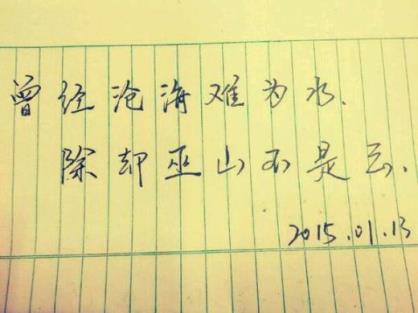 曾经沧海难为水.
除却巫山不是云.
2015.01.13